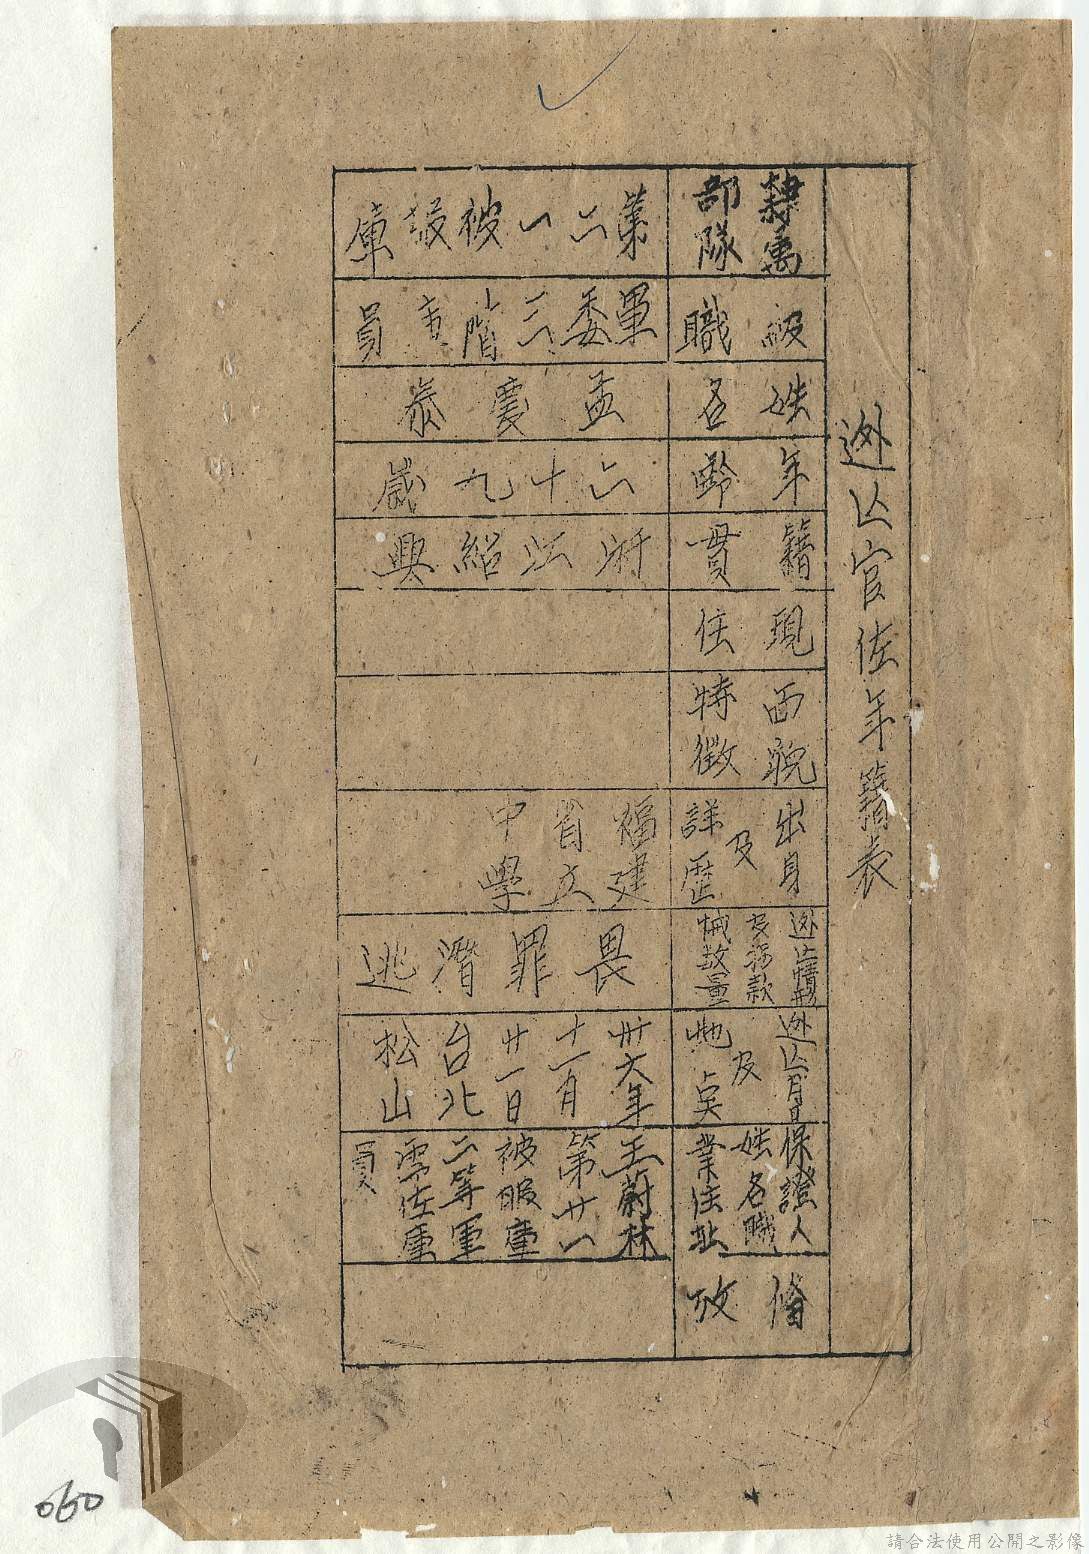 逃亡官佐年籍表
隸屬部隊
第二一被服庫
級職
軍委三階庫員
姓名
孟慶泰
年齡
六十九歲
籍貫
浙江紹興
現住
面貌特徵
出身及詳歷
福建省立中學
逃亡情形及拐款械數量
畏罪潛逃
逃亡月日及地點
卅六年十一月廿一日台北松山
保證人姓名職業住址
王蔚林第廿一被服庫二等軍需佐庫員
備攷
060
請合法使用公開之影像